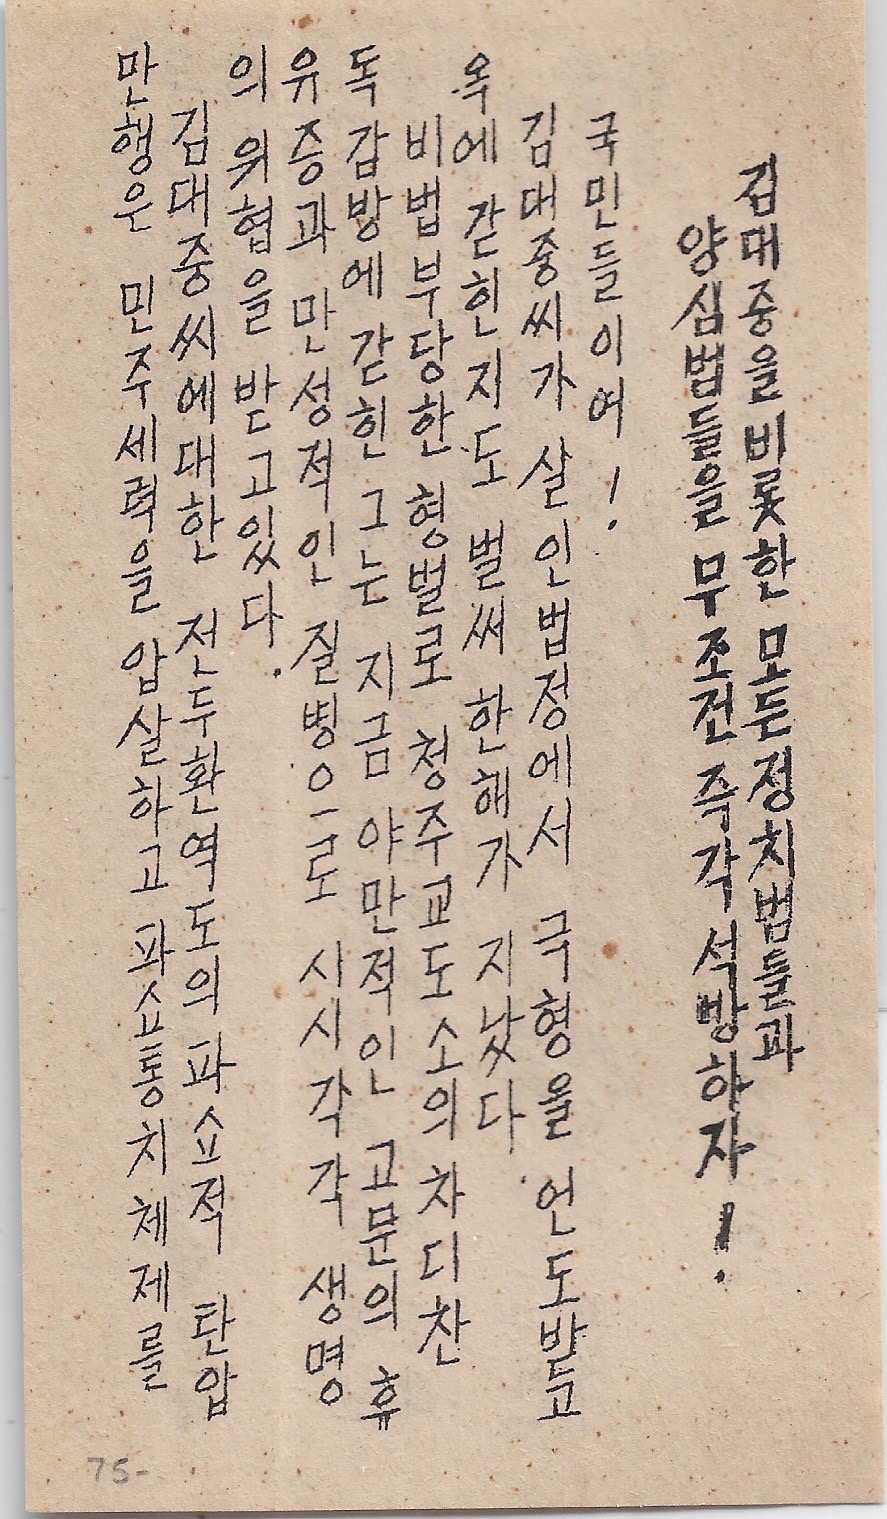 김대중을 비롯한 모든정치범들과
양심범들을 무조건 즉각 석방하자!
국민들이여!
김대중씨가 살인법정에서 극형을 언도받고
옥에 갇힌지도 벌써 한해가 지났다.
비법부당한 형벌로 청주교도소의 차디찬
독감방에 갇힌 그는 지금 야만적인 고문의 휴
유증과 만성적인 질병으로 시시각각 생명
의 위협을 받고있다.
김대중씨에대한 전두환역도의 파쇼적 탄압
만행은 민주세력을 압살하고 파쇼통치체제를
75-